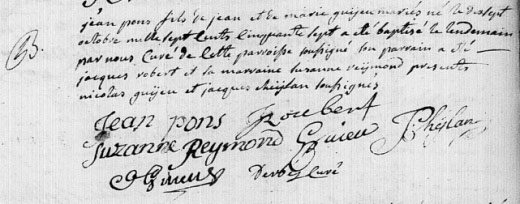 B.
jean pons fils de jean et de marie guijeu mariés né le dixsept
octobre mille sept cents cinquante sept a été baptisé le lendemain
par nous Curé de cette parroisse soussigné son parrain a été
jacques robert et la marraine suzanne reymond presents
nicolas guijeu et jacques cheijlan soussignés
Jean pons J Roubert
Suzanne Reymond Guieu J Cheylan
curé